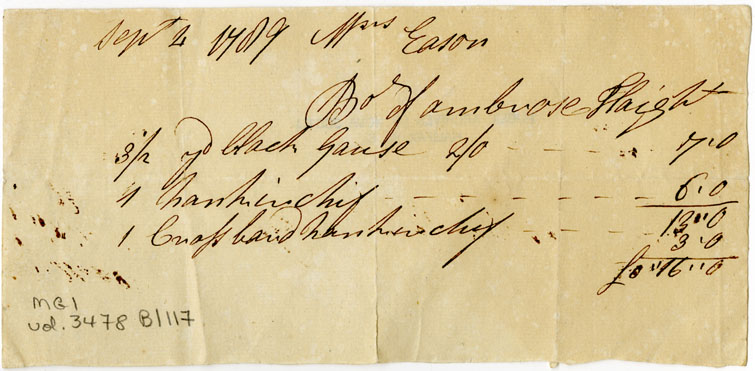 Sept 4 1789 Mrs Eason
Bot of ambrose Haight
3 1/2 yd black Gause 2/0 - - - - 7"0
1 hankirchif - - - - - - - - 6"0
13"0
1 Crossbard hankirchif - - - 3"0
£0"16"0
MG1
vol. 3478 B/117